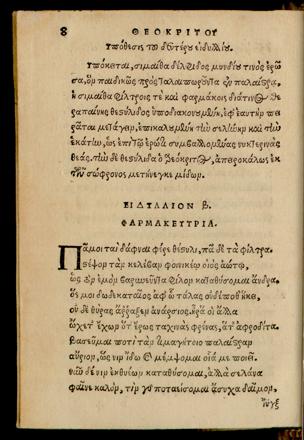 8 ΘΕΟΚΡΙΤΟΥ
Υπόθεσις τοῦ δευτέρου εἰδυλλίου.
Υπόκειται, σιμαίθα δέλφιδος μυνδίου τινὸς ἐρῶ
σα, ὃν παιδικῶς πρὸς ταλαιπωροῦντα ἐν παλαίστρᾳ.
ἡ σιμαίθα φίλτροις τὲ καὶ φαρμάκοις διά τινος θε
ραπαίνης θεστύλιδος ὑποδιακονουμένης, ἐφ' ἑαυτὴν πει
ρᾶται μετάγειν, ἐπικαλουμένη τὴν σελήνην καὶ τὴν
ἑκάτην, ὡς ἐπὶ τῷ ἔρωτι συμβαλλομένας νυκτερινὰς
θεάς. τὴν δὲ θεστύλιδα ὁ θεόκριτος, ἀπειροκάλως ἐκ
τῶν σώφρονος μετήνεγκε μίμων.
ΕΙΔΥΛΛΙΟΝ Β.
ΦΑΡΜΑΚΕΥΤΡΙΑ.
Πᾶ μοι ταὶ δάφναι φέρε θεστυλί, πᾶ δὲ τὰ φίλτρα.
στέψον τὰν κελέβαν φοινικέῳ οἰὸς ἀώτῳ,
ὡς τὸν ἐμὸν βαρυνεῦντα φίλον καταθύσομαι ἄνδρα.
ὅς μοι δωδεκαταῖος ἀφ' ὧ τάλας οὐδέποθ' ἥκει,
οὐδὲ θύρας ἄρραξεν ἀνάρσιος. ἦ ρά οἱ ἄλλᾳ
ᾤχετ' ἔχων ὅτ' ἔρως ταχινὰς φρένας, ἅτ' ἀφροδίτα.
βασεῦμαι ποτὶ τὰν τιμαγήτοιο παλαίστραν
αὔριον, ὥς νιν ἴδω καὶ μέμψομαι οἷά με ποιεῖ.
νῦν δέ νιν ἐκ θυέων καταθύσομαι, ἀλλὰ σελάνα
φαῖνε καλόν, τὶν γὰρ ποταείσομαι ἄσυχα δαῖμον,